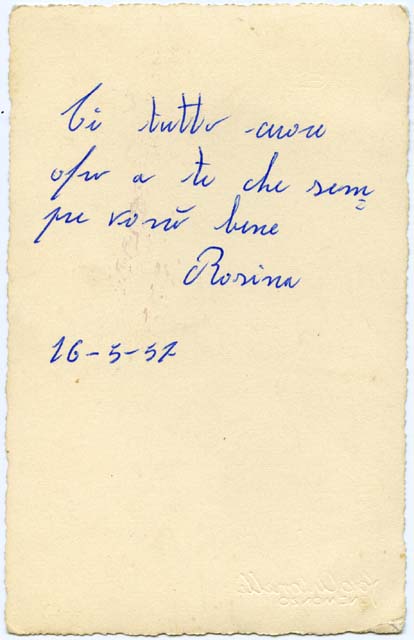 Di tutto cuore
ofro a te che sem=
pre vorrò bene
Rosina
16-5-57